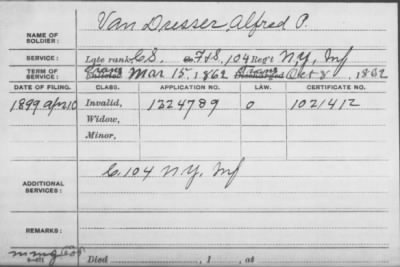 NAME OF SOLDIER: Van Dresser, Alfred P.
SERVICE: Late rank, C.S. F & S. 104 Reg't N.Y. Inf
TERM OF SERVICE: Enlisted Mar 15, 1862 Discharged Oct 8, 1862
DATE OF FILING. CLASS. APPLICATION NO. LAW. CERTIFICATE NO.
1899 Apr 10 Invalid, 1224789 O 1021412
Widow,
Minor,
ADDITIONAL SERVICES: C. 104 N.Y. Inf
REMARKS:
Died , 1 , at